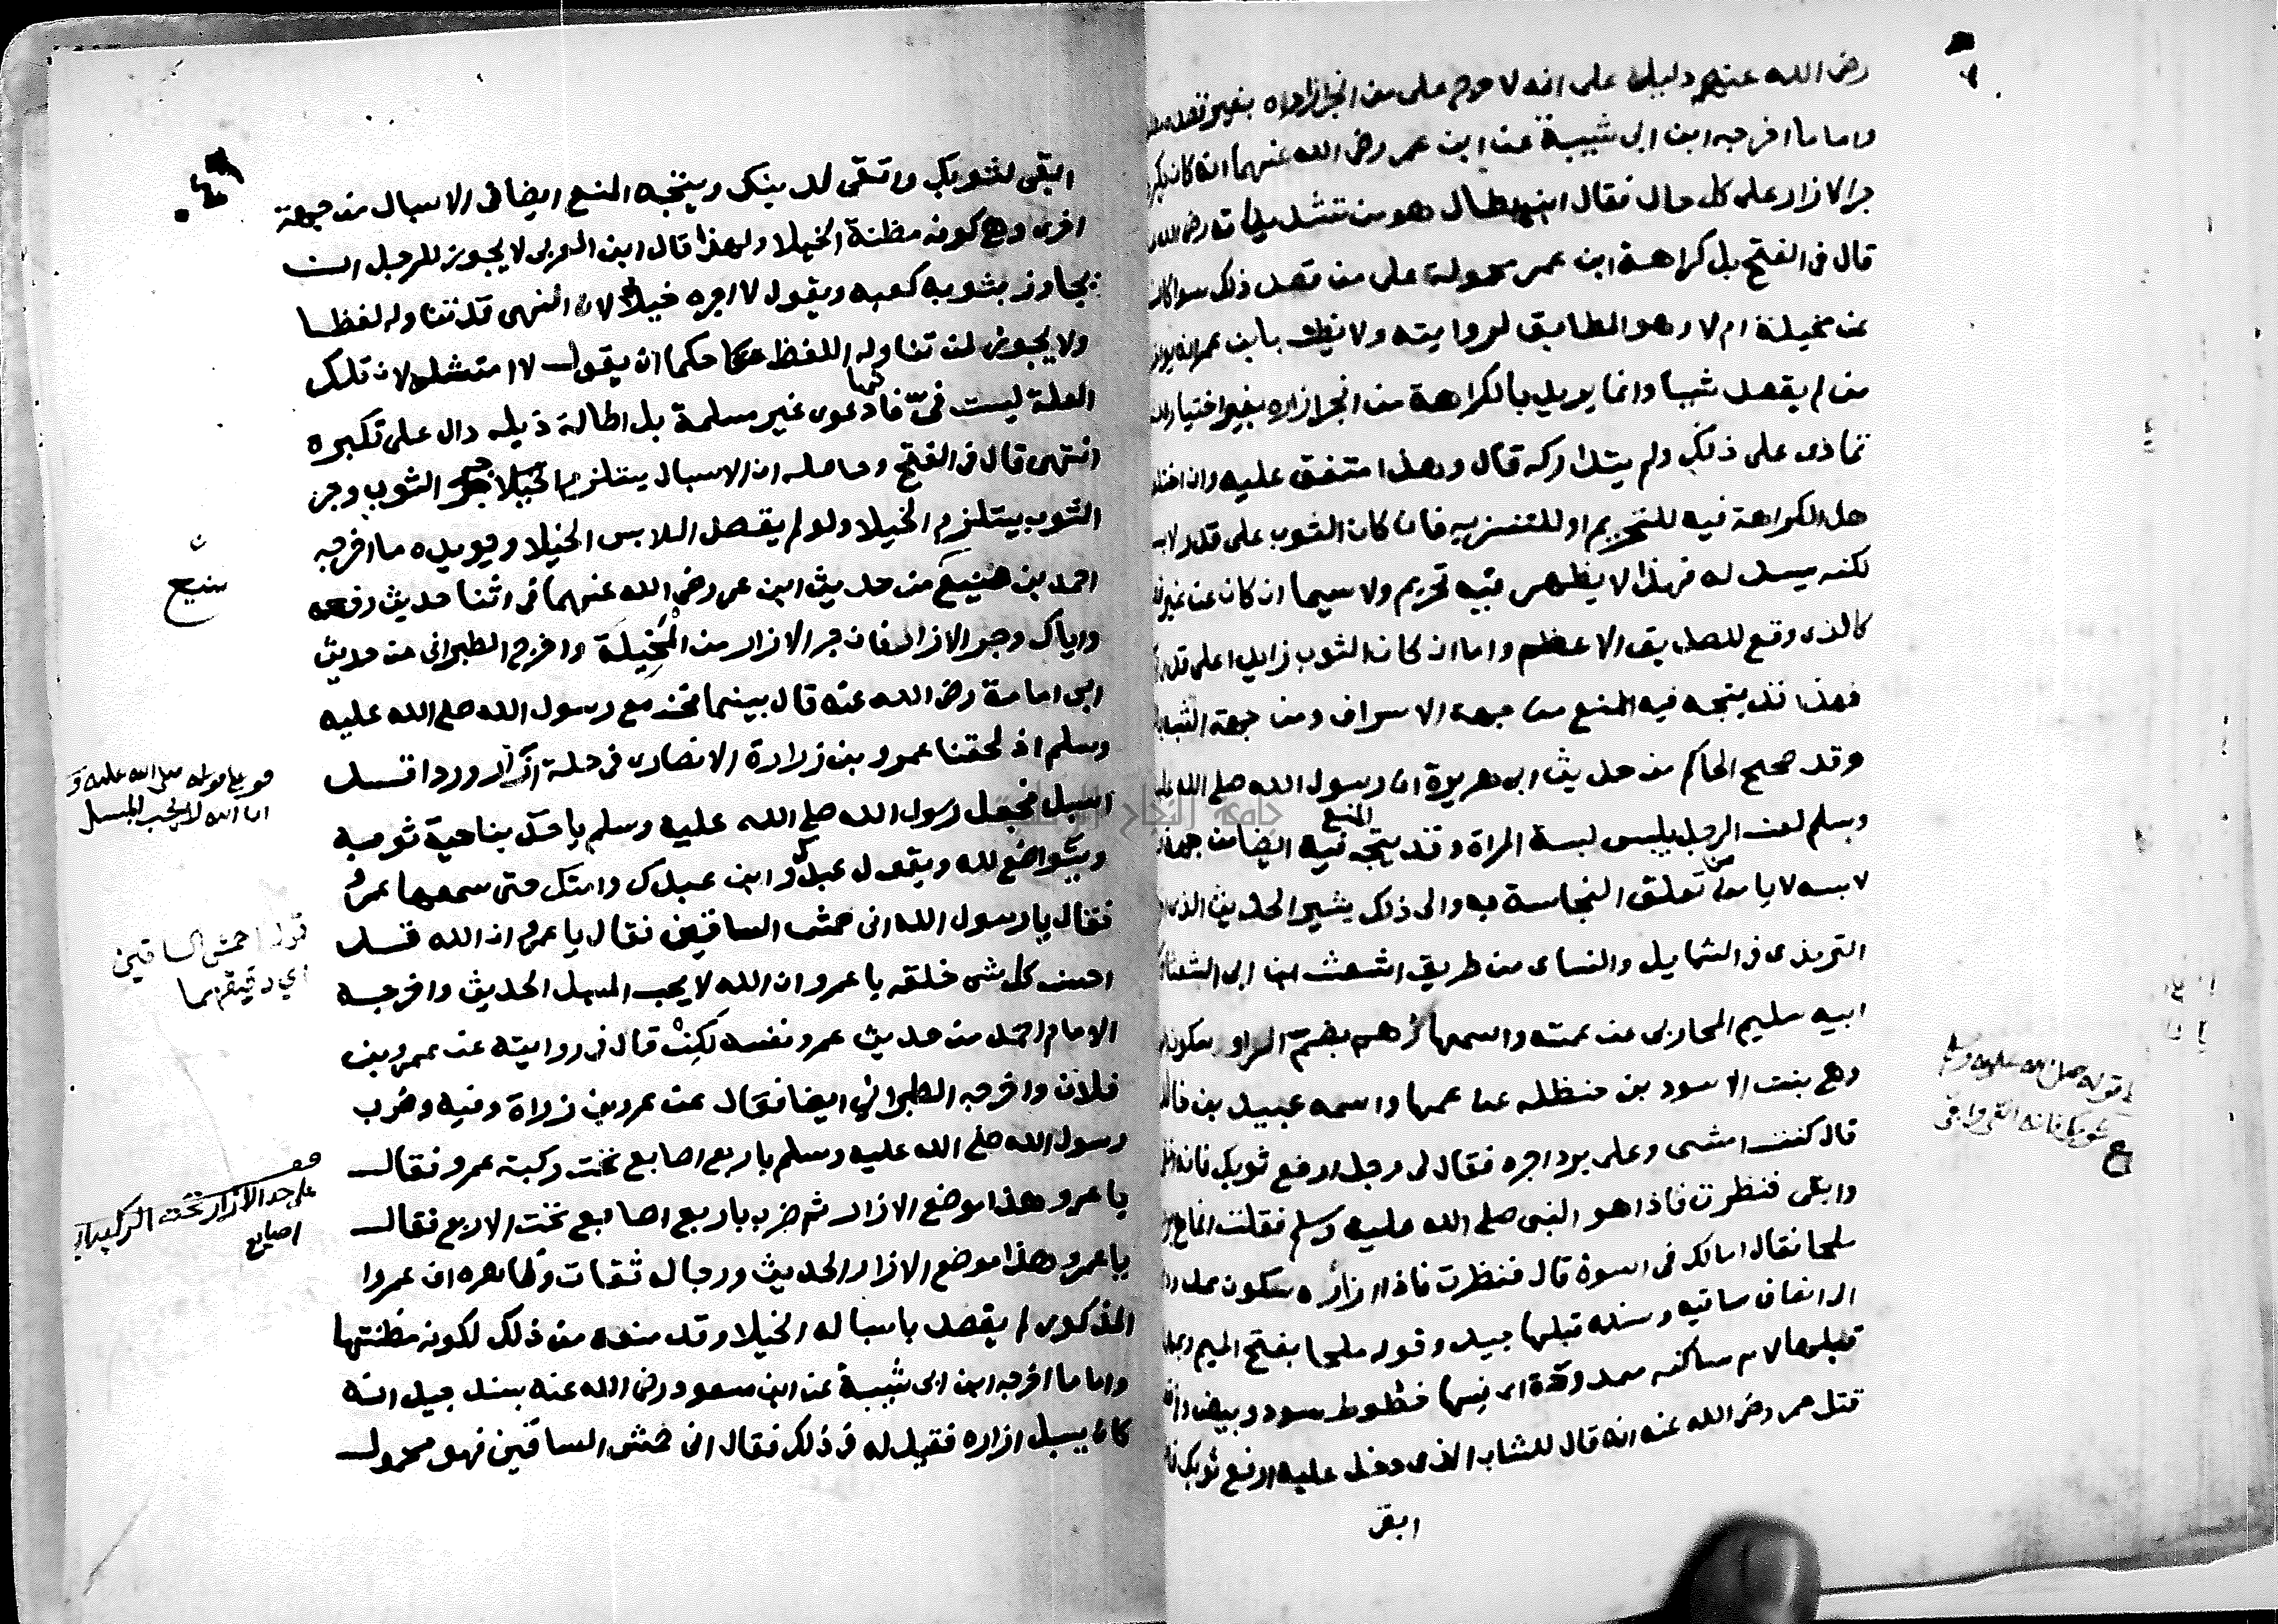 رضي الله عنهم دليل على انه لا حرج على من انجر ازاره بغير قصد
واما ما اخرجه ابن ابي شيبة عن ابن عمر رضي الله عنهما انه كان يكره
جر الازار على كل حال فقال ابن بطال هو من تشديداته رضي الله
قال في الفتح بل كراهة ابن عمر محمولة على من قصد ذلك سوا كان
عن مخيلة ام لا وهو المطابق لروايته ولا يظن بابن عمر انه يواخذ
من لم يقصد شيا وانما يريد بالكراهة من انجر ازاره بغير اختياره
تمادى على ذلك ولم يتداركه قال وهذا متفق عليه وان اختلفوا
هل الكراهة فيه للتحريم او للتنزيه فان كان الثوب على قدر لابسه
لكنه يسدله فهذا لا يظهر فيه تحريم ولا سيما ان كان عن غير قصد
كالذي وقع للصديق الاعظم واما ان كان الثوب زايدا على قدر
فهذا قد يتجه فيه المنع من جهة الاسراف ومن جهة التشبه
وقد صحح الحاكم من حديث ابي هريرة ان رسول الله صلى الله عليه
وسلم لعن الرجل يلبس لبسة المراة وقد يتجه المنع فيه ايضا من جهة ان
لابسه لا يامن من تعلق النجاسة به والى ذلك يشير الحديث الذي
الترمذي في الشمايل والنساى من طريق اشعث ابن ابي الشعثا
ابيه سليم المحاربي عن عمته واسمها رهم بضم الرا وسكون
وهي بنت الاسود بن حنظله عن عمها واسمه عبيد بن خالد
قال كنت امشى وعلى برد اجره فقال لى رجل ارفع ثوبك فانه انقى
وابقى فنظرت فاذا هو النبي صلى الله عليه وسلم فقلت انما هي
ملحا فقال امالك في اسوة قال فنظرت فاذا ازاره
الى انصاف ساقيه وسنده قبلها جيد وقوله ملحا بفتح الميم
قبلها لام ساكنه ممدودة اي فيها خطوط سود وبيض
قتل عمر رضي الله عنه انه قال للشاب الذى دخل عليه ارفع ثوبك فانه
ابقى
قوله صلى الله عليه وسلم
ثوبك فانه انقى وابقى
ابقى لثوبك واتقى لربك ويتجه المنع ايضا في الاسبال من جهة
اخرى وهي كونه مظنة الخيلا ولهذا قال ابن العربي لا يجوز للرجل ان
يجاوز بثوبه كعبه ويقول لا اجره خيلا لان النهي قد تناوله لفظا
ولا يجوز لمن تناوله اللفظ حكما ان يقول لا امتثله لان تلك
العلة ليست فيّ فانها دعوى غير مسلمة بل اطالة ذيله دال على تكبره
انتهى قال في الفتح وحاصله ان الاسبال يستلزم جر الثوب وجر
الثوب يستلزم الخيلا ولو لم يقصد اللابس الخيلا ويويده ما اخرجه
احمد بن منيع من حديث ابن عمر رضي الله عنهما في اثنا حديث رفعه
واياك وجر الازار فان جر الازار من المَخِيلَة واخرج الطبراني من حديث
ابي امامة رضي الله عنه قال بينما نحن مع رسول الله صلى الله عليه
وسلم اذ لحقنا عمرو بن زرارة الانصاري في حلة ازار وردا قد
اسبل فجعل رسول الله صلى الله عليه وسلم ياخذ بناحية ثوبه
ويتواضع لله ويقول عبدك وابن عبدك وامتك حتى سمعها عمرو
فقال يا رسول الله اني حمش الساقين فقال يا عمرو ان الله قد
احسن كل شي خلقه يا عمرو ان الله لا يحب المسبل الحديث واخرجه
الامام احمد من حديث عمرو نفسه لكنْ قال في روايته عن عمرو بن
فلان واخرجه الطبراني ايضا فقال عن عمرو بن زراة وفيه وضرب
رسول الله صلى الله عليه وسلم باربع اصابع تحت ركبة عمرو فقال
يا عمرو هذا موضع الازار ثم ضرب باربع اصابع تحت الاربع فقال
يا عمرو هذا موضع الازار الحديث ورجاله ثقات وظاهره ان عمروا
المذكور لم يقصد باسباله الخيلا وقد منعه من ذلك لكونه مظنتها
واما ما اخرجه ابن ابي شيبة عن ابن مسعود رضي الله عنه بسند جيد انه
كان يسبل ازاره فقيل له في ذلك فقال اني حمش الساقين فهو محمول
ن
منيع
قوله صلى الله عليه و
ان الله لا يحب المسبل
قوله احمش الساقين
اي دقيقهما
قف
على حد الازار تحت الركبة باربع
اصابع
جامعة النجاح الوطنية